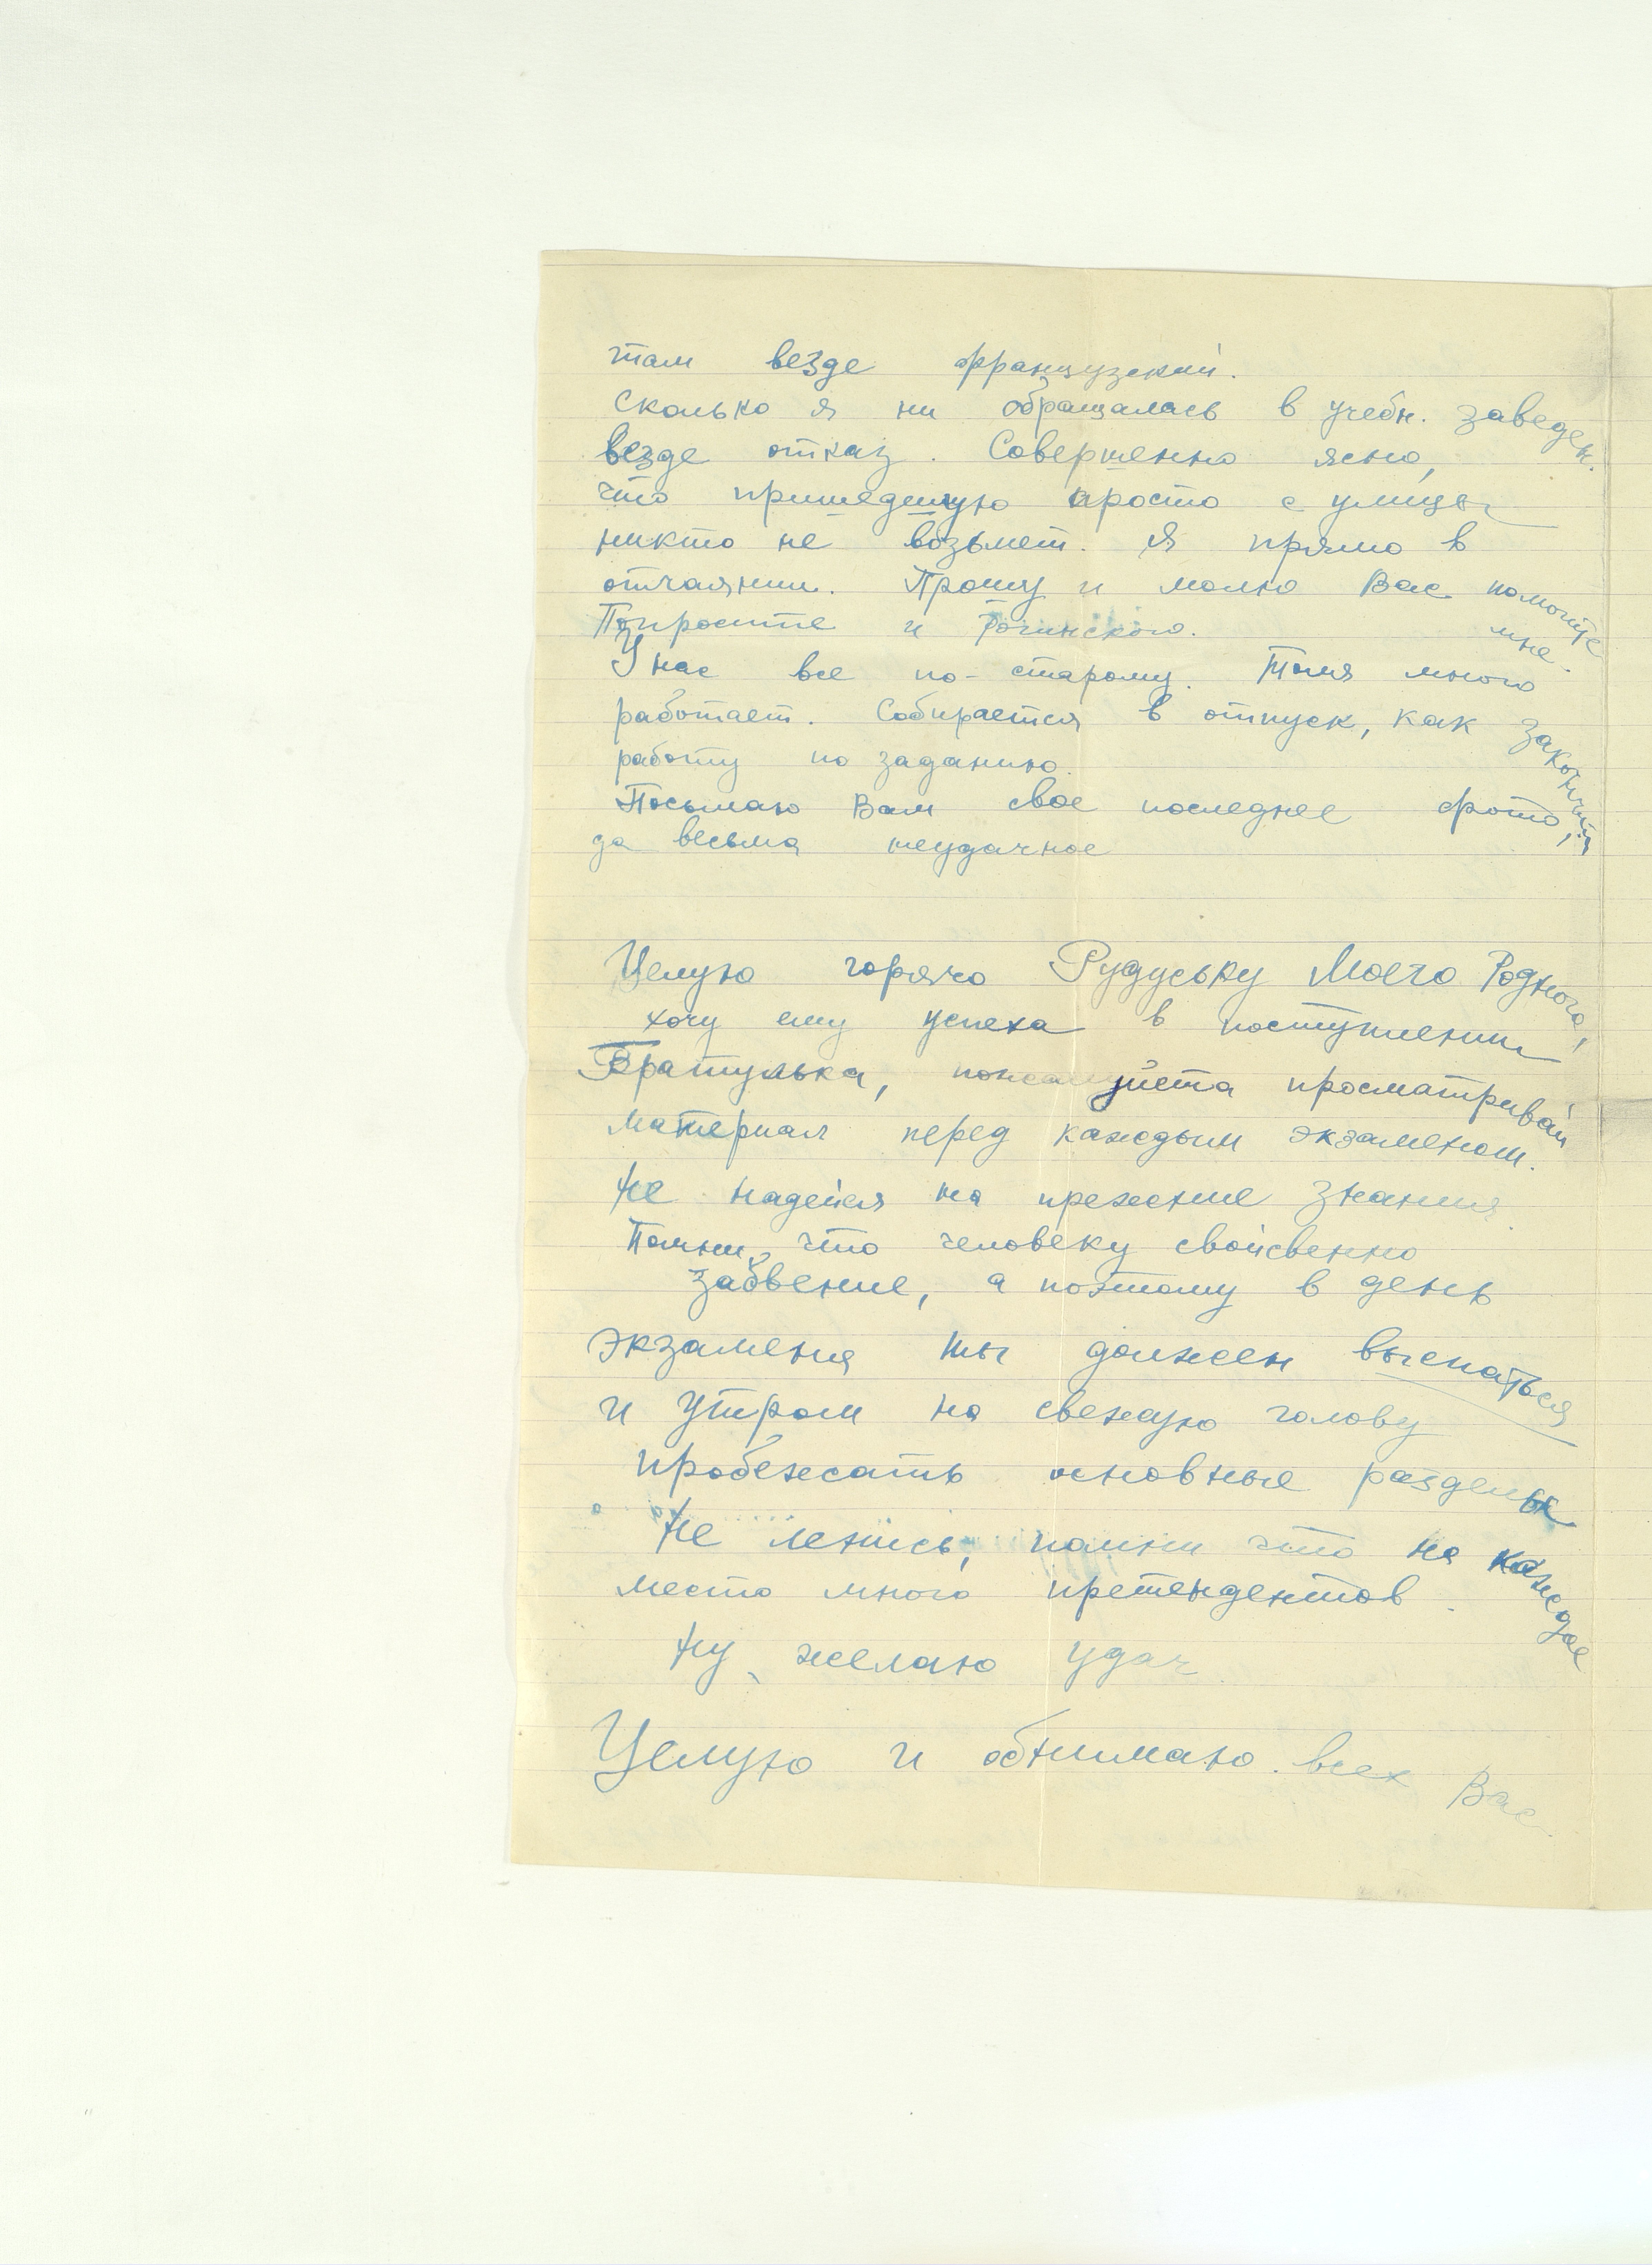 там везде французский.
Сколько я ни обращалась в учебн. заведен.
везде отказ. Совершенно ясно,
что пришедшую просто с улицы
никто не возьмет. Я прямо в
отчаянии. Прошу и молю Вас помогите мне.
Попросите и Рогинского.
У нас все по-старому. Толя много
работает. Собирается в отпуск, как закончит
работу по заданию.
Посылаю Вам свое последнее фото,
да весьма неудачное
Целую горячо Рудуську Моего Родного,
хочу ему успеха в поступлении
Братулька, пожалуйста просматривай
материал перед каждым экзаменом.
Не надейся на прежние знания
Помни, что человеку свойсвенно
забвение, а поэтому в день
экзамена ты должен выспаться
и утром на свежую голову
пробежать основные разделы
Не ленись, помни что на каждое
место много претендентов.
Ну, желаю удач
Целую и обнимаю всех Вас